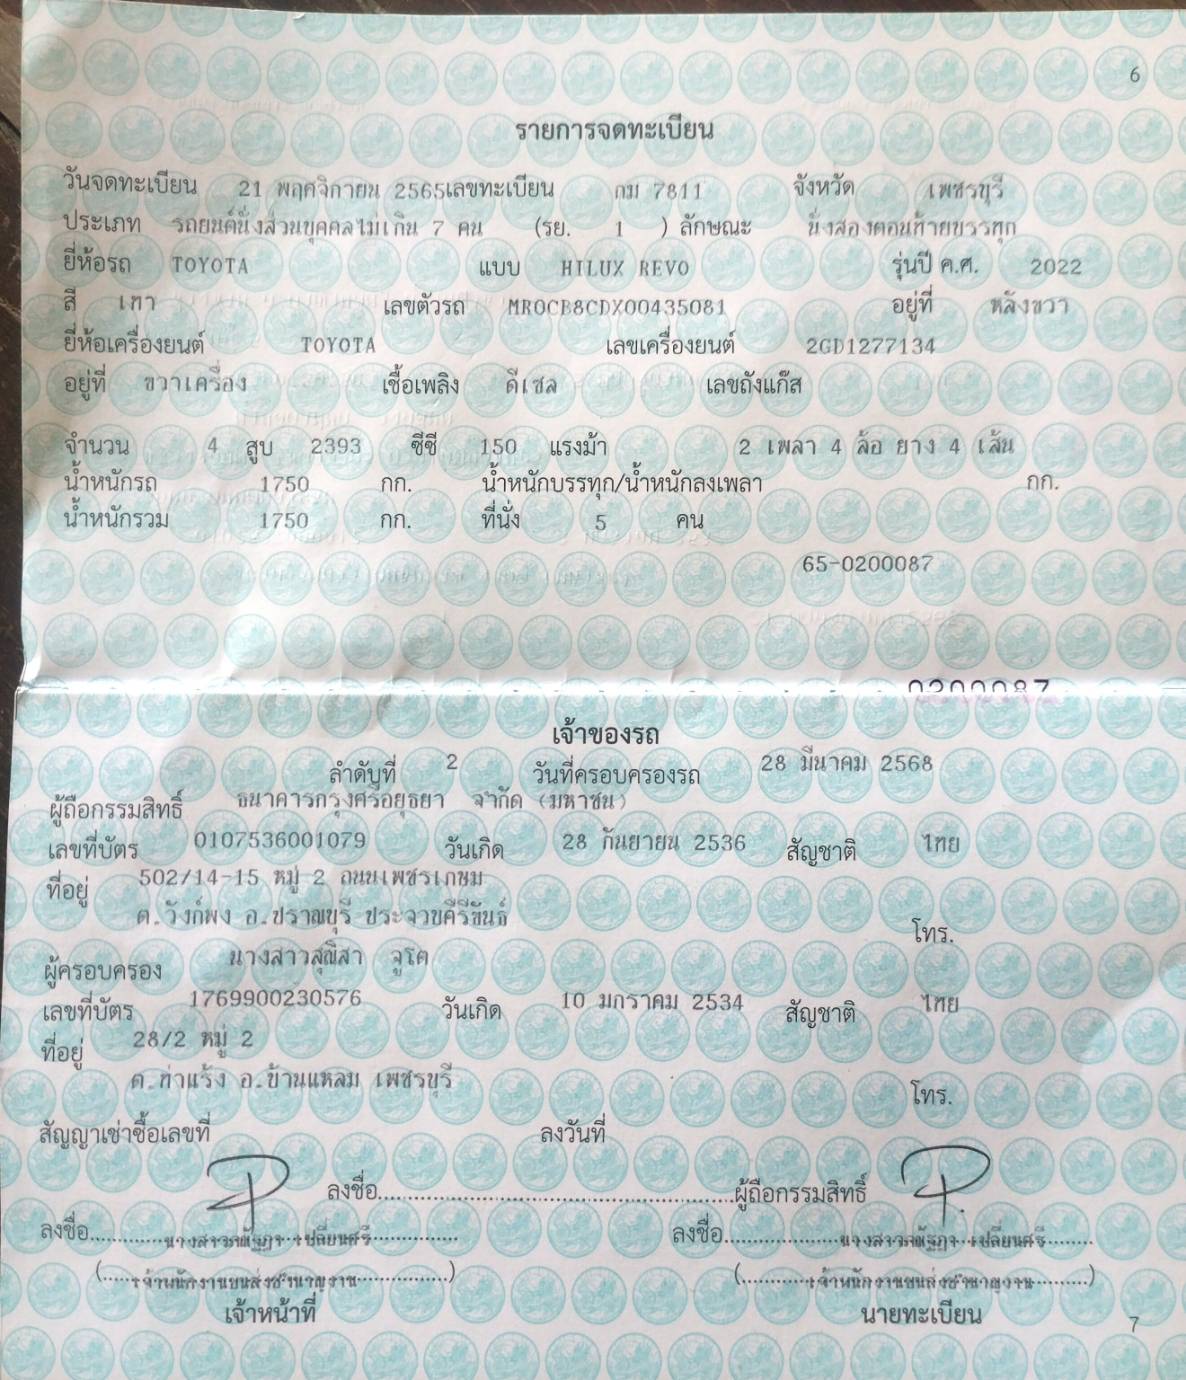 6
รายการจดทะเบียน
วันจดทะเบียน 21 พฤศจิกายน 2565 เลขทะเบียน กม 7811 จังหวัด เพชรบุรี
ประเภท รถยนต์นั่งส่วนบุคคลไม่เกิน 7 คน (รย. 1 ) ลักษณะ นั่งสองตอนท้ายบรรทุก
ยี่ห้อรถ TOYOTA แบบ HILUX REVO รุ่นปี ค.ศ. 2022
สี เทา เลขตัวรถ MR0CB8CDX00435081 อยู่ที่ หลังขวา
ยี่ห้อเครื่องยนต์ TOYOTA เลขเครื่องยนต์ 2GD1277134
อยู่ที่ ขวาเครื่อง เชื้อเพลิง ดีเซล เลขถังแก๊ส
จำนวน 4 สูบ 2393 ซีซี 150 แรงม้า 2 เพลา 4 ล้อ ยาง 4 เส้น
น้ำหนักรถ 1750 กก. น้ำหนักบรรทุก/น้ำหนักลงเพลา กก.
น้ำหนักรวม 1750 กก. ที่นั่ง 5 คน
65-0200087
0200087
เจ้าของรถ
ลำดับที่ 2 วันที่ครอบครองรถ 28 มีนาคม 2568
ผู้ถือกรรมสิทธิ์ ธนาคารกรุงศรีอยุธยา จำกัด (มหาชน)
เลขที่บัตร 0107536001079 วันเกิด 28 กันยายน 2536 สัญชาติ ไทย
ที่อยู่ 502/14-15 หมู่ 2 ถนนเพชรเกษม
ต.วังก์พง อ.ปราณบุรี ประจวบคีรีขันธ์
โทร.
ผู้ครอบครอง นางสาวสุณิสา จูโต
เลขที่บัตร 1769900230576 วันเกิด 10 มกราคม 2534 สัญชาติ ไทย
ที่อยู่ 28/2 หมู่ 2
ต.ท่าแร้ง อ.บ้านแหลม เพชรบุรี
โทร.
สัญญาเช่าซื้อเลขที่ ลงวันที่
ลงชื่อ ผู้ถือกรรมสิทธิ์
ลงชื่อ นางสาว เปลี่ยนศรี ลงชื่อ นางสาว เปลี่ยนศรี
(เจ้าพนักงานขนส่งชำนาญงาน) (เจ้าพนักงานขนส่งชำนาญงาน)
เจ้าหน้าที่ นายทะเบียน
7